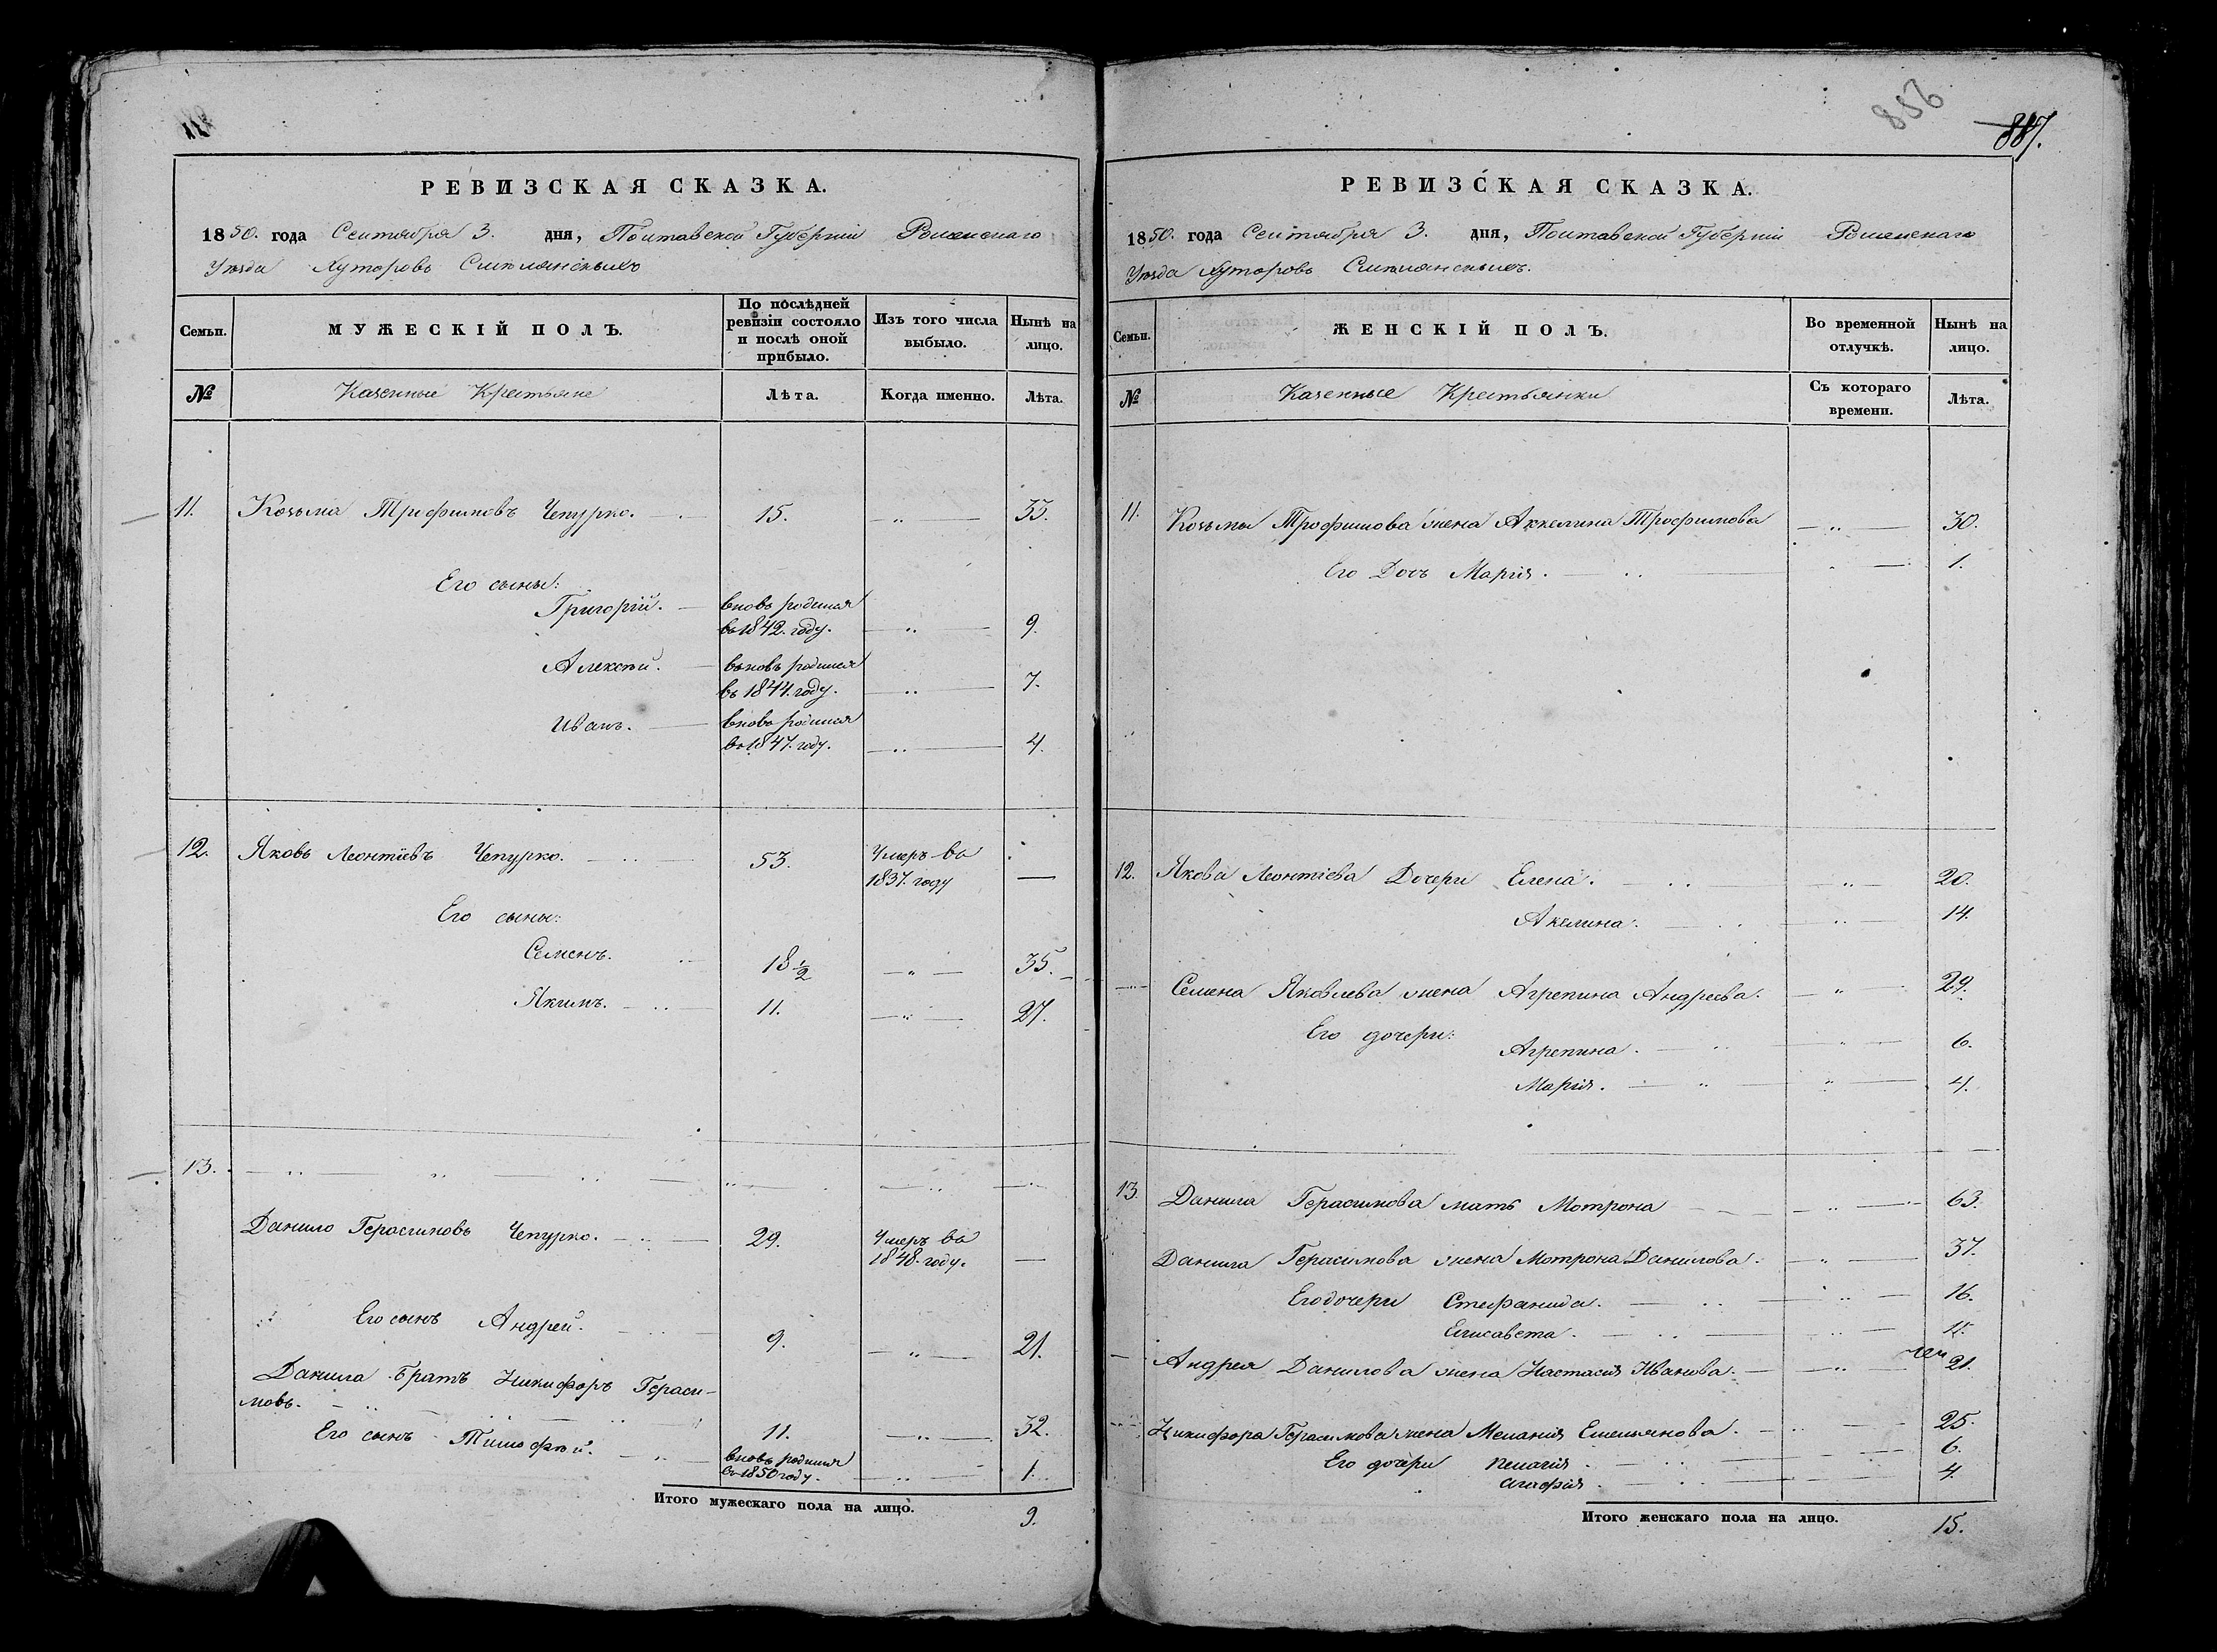 РЕВИЗСКАЯ СКАЗКА.
1850. года Сентября 3. дня, Полтавской Губерніи Роменскаго
Уѣзда Хуторовъ
Семьи.
МУЖЕСКІЙ ПОЛЪ.
По послѣдней ревизіи состояло и послѣ оной прибыло.
Изъ того числа выбыло.
Нынѣ на лицо.
№
Казенные Крестьяне
Лѣта.
Когда именно.
Лѣта.
11. Козьма Трофимовъ Чепурко. 15. — „ — 35.
Его сыны:
Григорій. — вновь родился
въ 1842. году. — „ — 9.
Алексѣй. — вновь родился
въ 1844. году. — „ — 7.
Иванъ. — вновь родился
въ 1847. году. — „ — 4.
12. Яковъ Леонтіевъ Чепурко. — 53. Умеръ въ
1837. году —
Его сыны:
Семенъ. 18 1/2 — „ — 35.
Якимъ. — 11. — „ — 27.
13. — „ — „ —
Данило Герасимовъ Чепурко. — 29. Умеръ въ
1848. году. —
Его сынъ Андрей. — 9. — „ — 21.
Данила братъ Никифоръ Гераси-
мовъ. — 11. — „ — 32.
Его сынъ Тимофѣй. — вновь родился
въ 1850 году. — „ — 1.
Итого мужескаго пола на лицо. 9.
856
887.
РЕВИЗСКАЯ СКАЗКА.
1850. года Сентября 3. дня, Полтавской Губерніи Роменскаго
Уѣзда Хуторовъ
Семьи.
ЖЕНСКІЙ ПОЛЪ.
Во временной отлучкѣ.
Нынѣ на лицо.
№
Казенные Крестьянки
Съ котораго времени.
Лѣта.
11. Козьмы Трофимова жена Аккелина Трофимова — „ — 30.
Его Дочь Марія. — „ — 1.
12. Якова Леонтіева Дочери Елена. — „ — 20.
Акелина. — „ — 14.
Семена Яковлева жена Агрепина Андреева. — „ — 29.
Его дочери:
Агрепина. — „ — 6.
Марія. — „ — 4.
13. Данила Герасимова мать Мотрона — „ — 63.
Данила Герасимова жена Мотрона Данилова. — „ — 37.
Его дочери Стефанида. — „ — 16.
Елисавета. — „ —
Андрея Данилова жена Настасія Иванова. — „ — 21.
Никифора Герасимова жена Меланія Емельянова. — „ — 25.
Его дочери Пелагія. — „ — 6.
Агафія. — „ — 4.
Итого женскаго пола на лицо. 15.